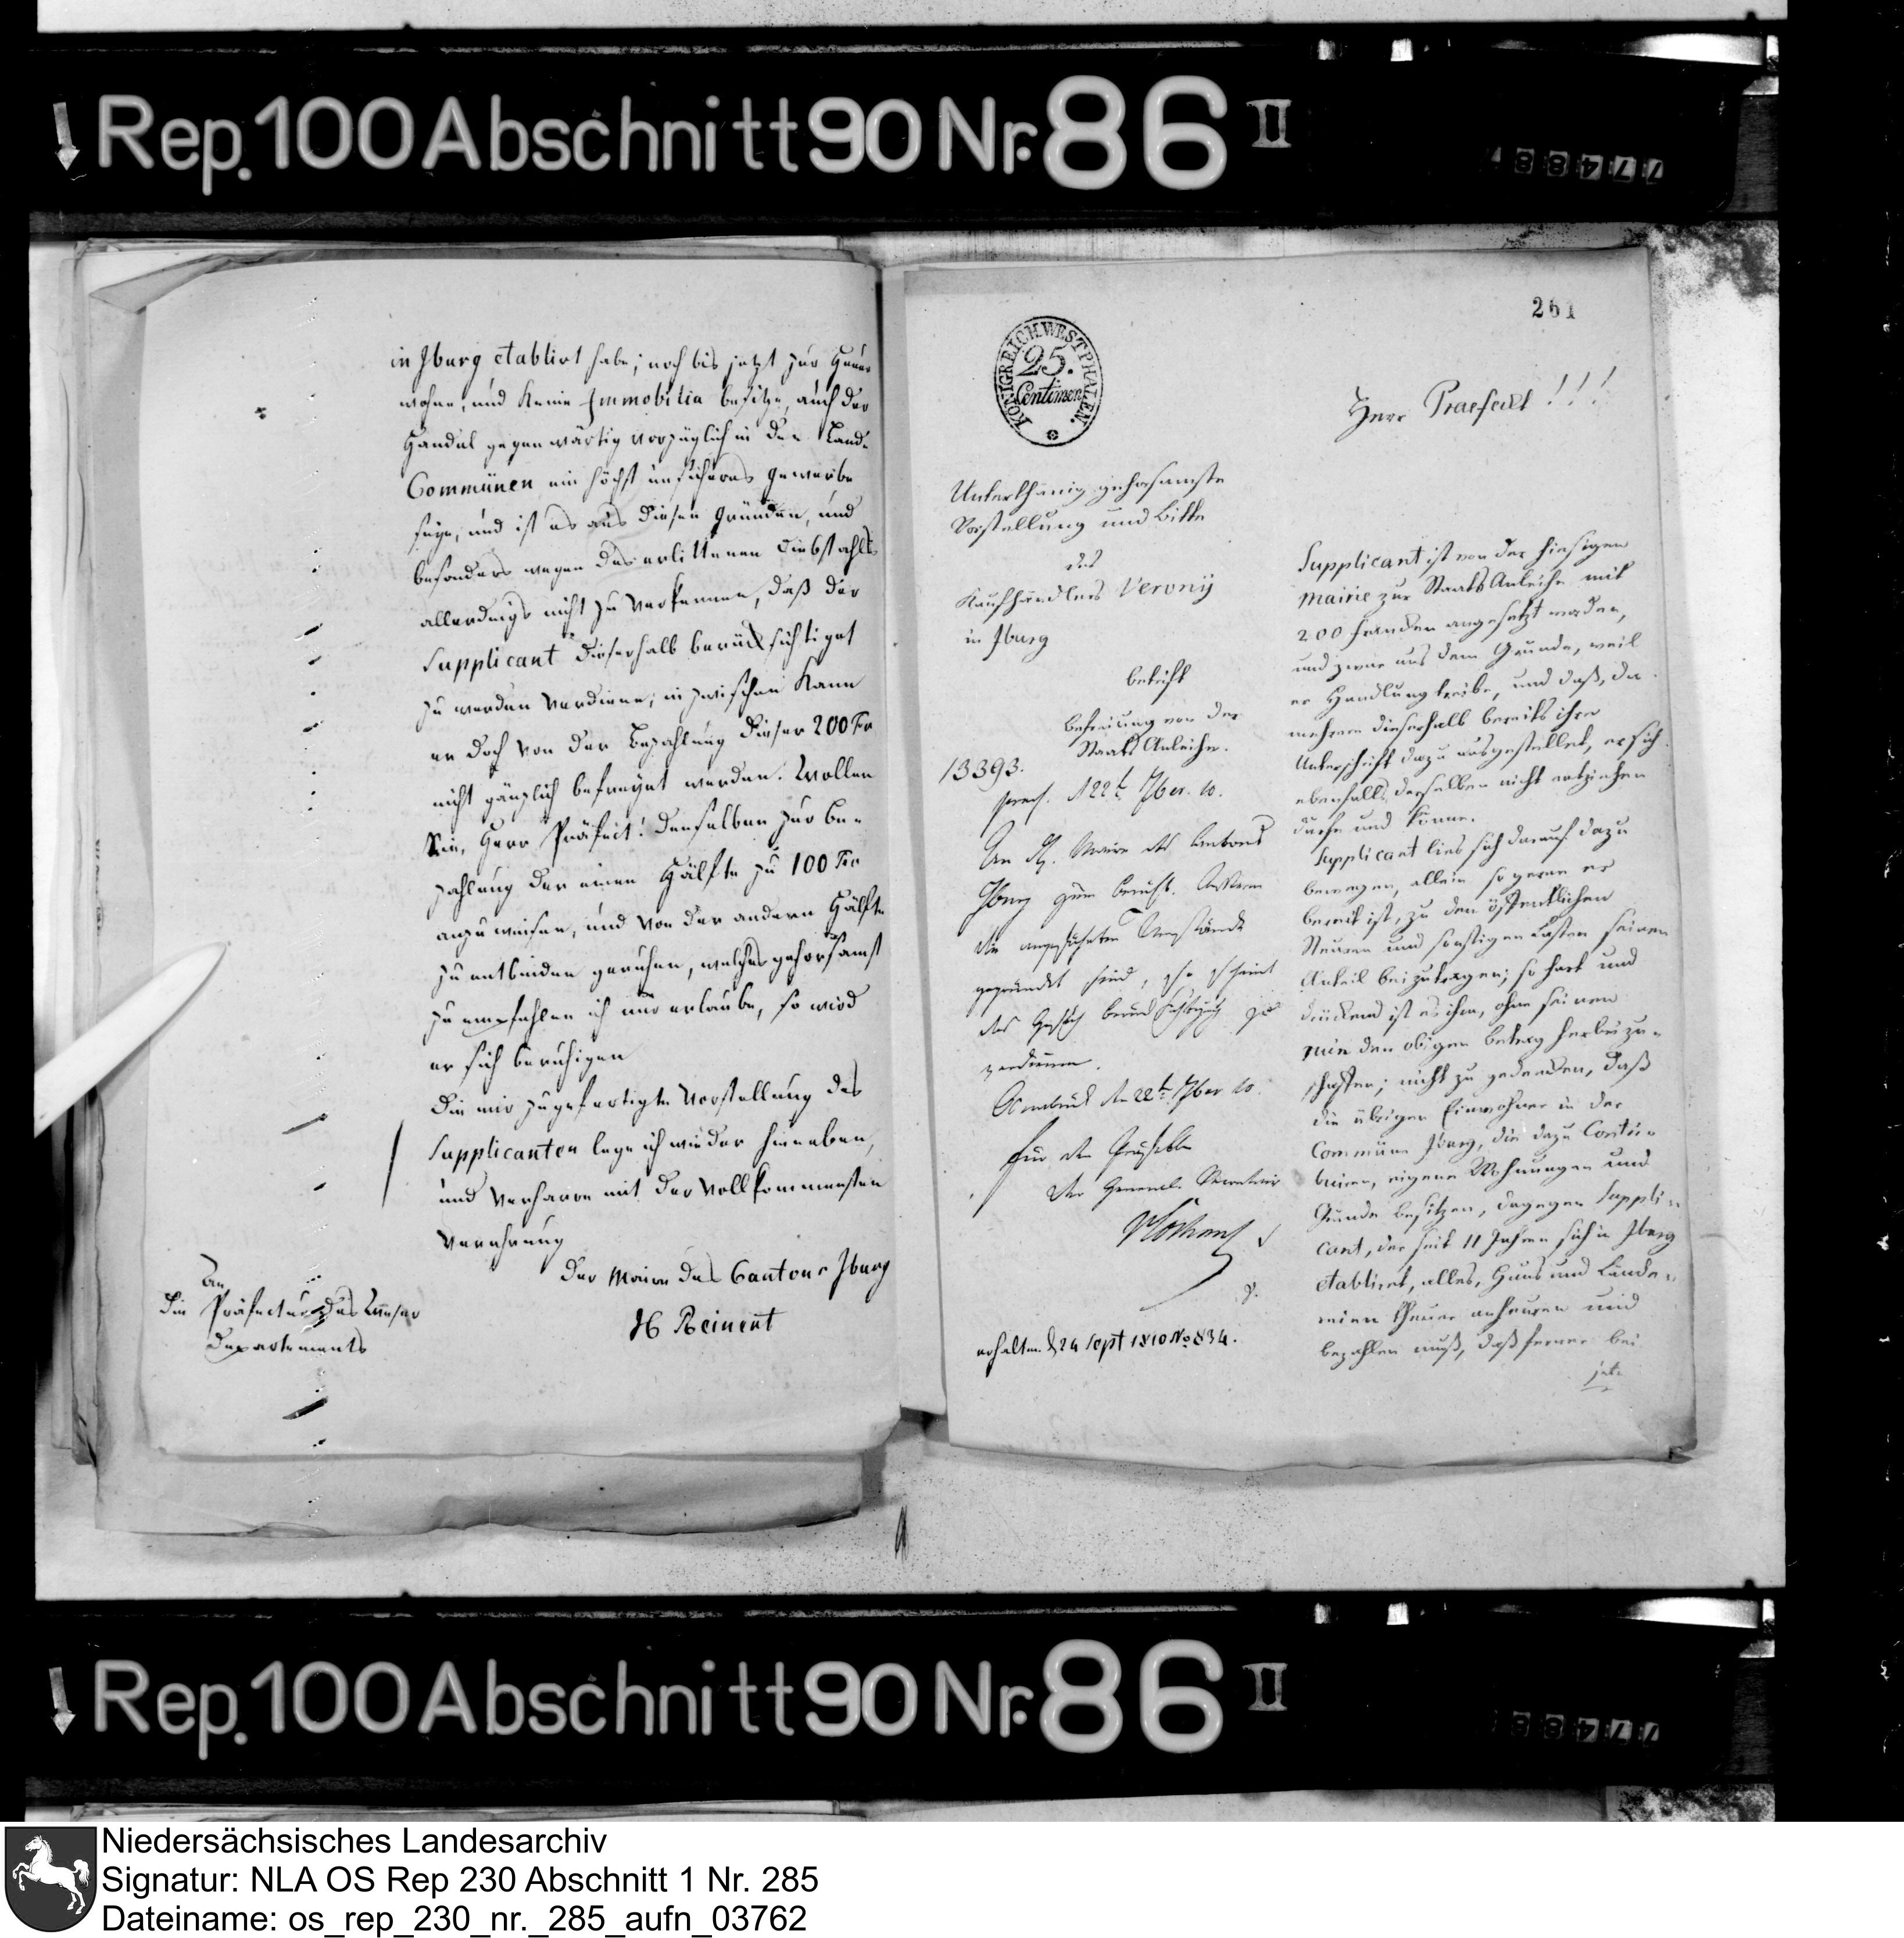 Rep. 100 Abschnitt 90 Nr. 86 II
77488
in Iburg etablirt habe; noch bis jetzt zur Heuer
wohne, und keine Immobilia besitze, auch der
Handel gegenwärtig vorzüglich in den Land-
Communen ein höchst unsicheres Gewerbe
seye, und ist es aus diesen Gründen, und
besonders wegen des erlittenen Diebstahls
allerdings nicht zu verkennen, daß der
Supplicant dieserhalb berücksichtiget
zu werden verdiene; inzwischen kann
er doch von der Bezahlung dieser 200 Frn
nicht gänzlich befreyet werden. Wollen
Sie, Herr Präfect! denselben zur Be-
zahlung der einen Hälfte zu 100 Frn
anzuweisen, und von der andern Hälfte
zu entbinden geruhen, welches gehorsamst
zu empfehlen ich mir erlaube, so wird
er sich beruhigen
Die mir zugefertigte Vorstellung des
Supplicanten lege ich wieder hieneben,
und verharre mit der vollkommensten
Verehrung
Der Maire des Cantons Iburg
An
die Präfectur des Weser
Departements
261
KÖNIGREICH WESTPHALEN.
25.
Centimen
Herr Praefect!!!
Unterthänig gehorsamste
Vorstellung und Bitte
des
Kaufhändlers Verony
in Iburg
betrift
Befreiung von der
Staats Anleihe.
13393.
praes. d 22t 7ber. 10.
An H. Maire des Cantons
Iburg zum Bericht. Wenn
die angeführten Umstände
gegründet sind, so scheint
das Gesuch Berücksichtigung zu
verdienen.
Osnabrück den 22t 7ber 10.
Für den Präfecten
Der General-Secretair
erhalten d 24 Sept 1810 No 834.
Supplicant ist von der hiesigen
Mairie zur Staats Anleihe mit
200 Franken angesetzt worden,
und zwar aus dem Grunde, weil
er Handlung treibe, und daß, da
mehrere dieserhalb bereits ihre
Unterschrift dazu ausgestellet, er sich
ebenfalls derselben nicht entziehen
dürfe und könne.
Supplicant lies sich darauf dazu
bewegen, allein so gerne er
bereit ist, zu den öffentlichen
Steuren und sonstigen Lasten seinen
Anteil beizutragen; so hart und
drückend ist es ihm, ohne seinen
ruin den obigen Betrag herbeizu-
schaffen; nicht zu gedenken, daß
die übrigen Einwohner in der
Commüne Iburg, die dazu Contri-
buiren, eigene Wohnungen und
Gründe besitzen, dagegen Suppli-
cant, der seit 11 Jahren sich in Iburg
etablirt, alles, Haus und Lände-
reien theuer anheuren und
bezahlen muß, daß ferner bei
jetz-
Rep. 100 Abschnitt 90 Nr. 86 II
77488
Niedersächsisches Landesarchiv
Signatur: NLA OS Rep 230 Abschnitt 1 Nr. 285
Dateiname: os_rep_230_nr._285_aufn_03762